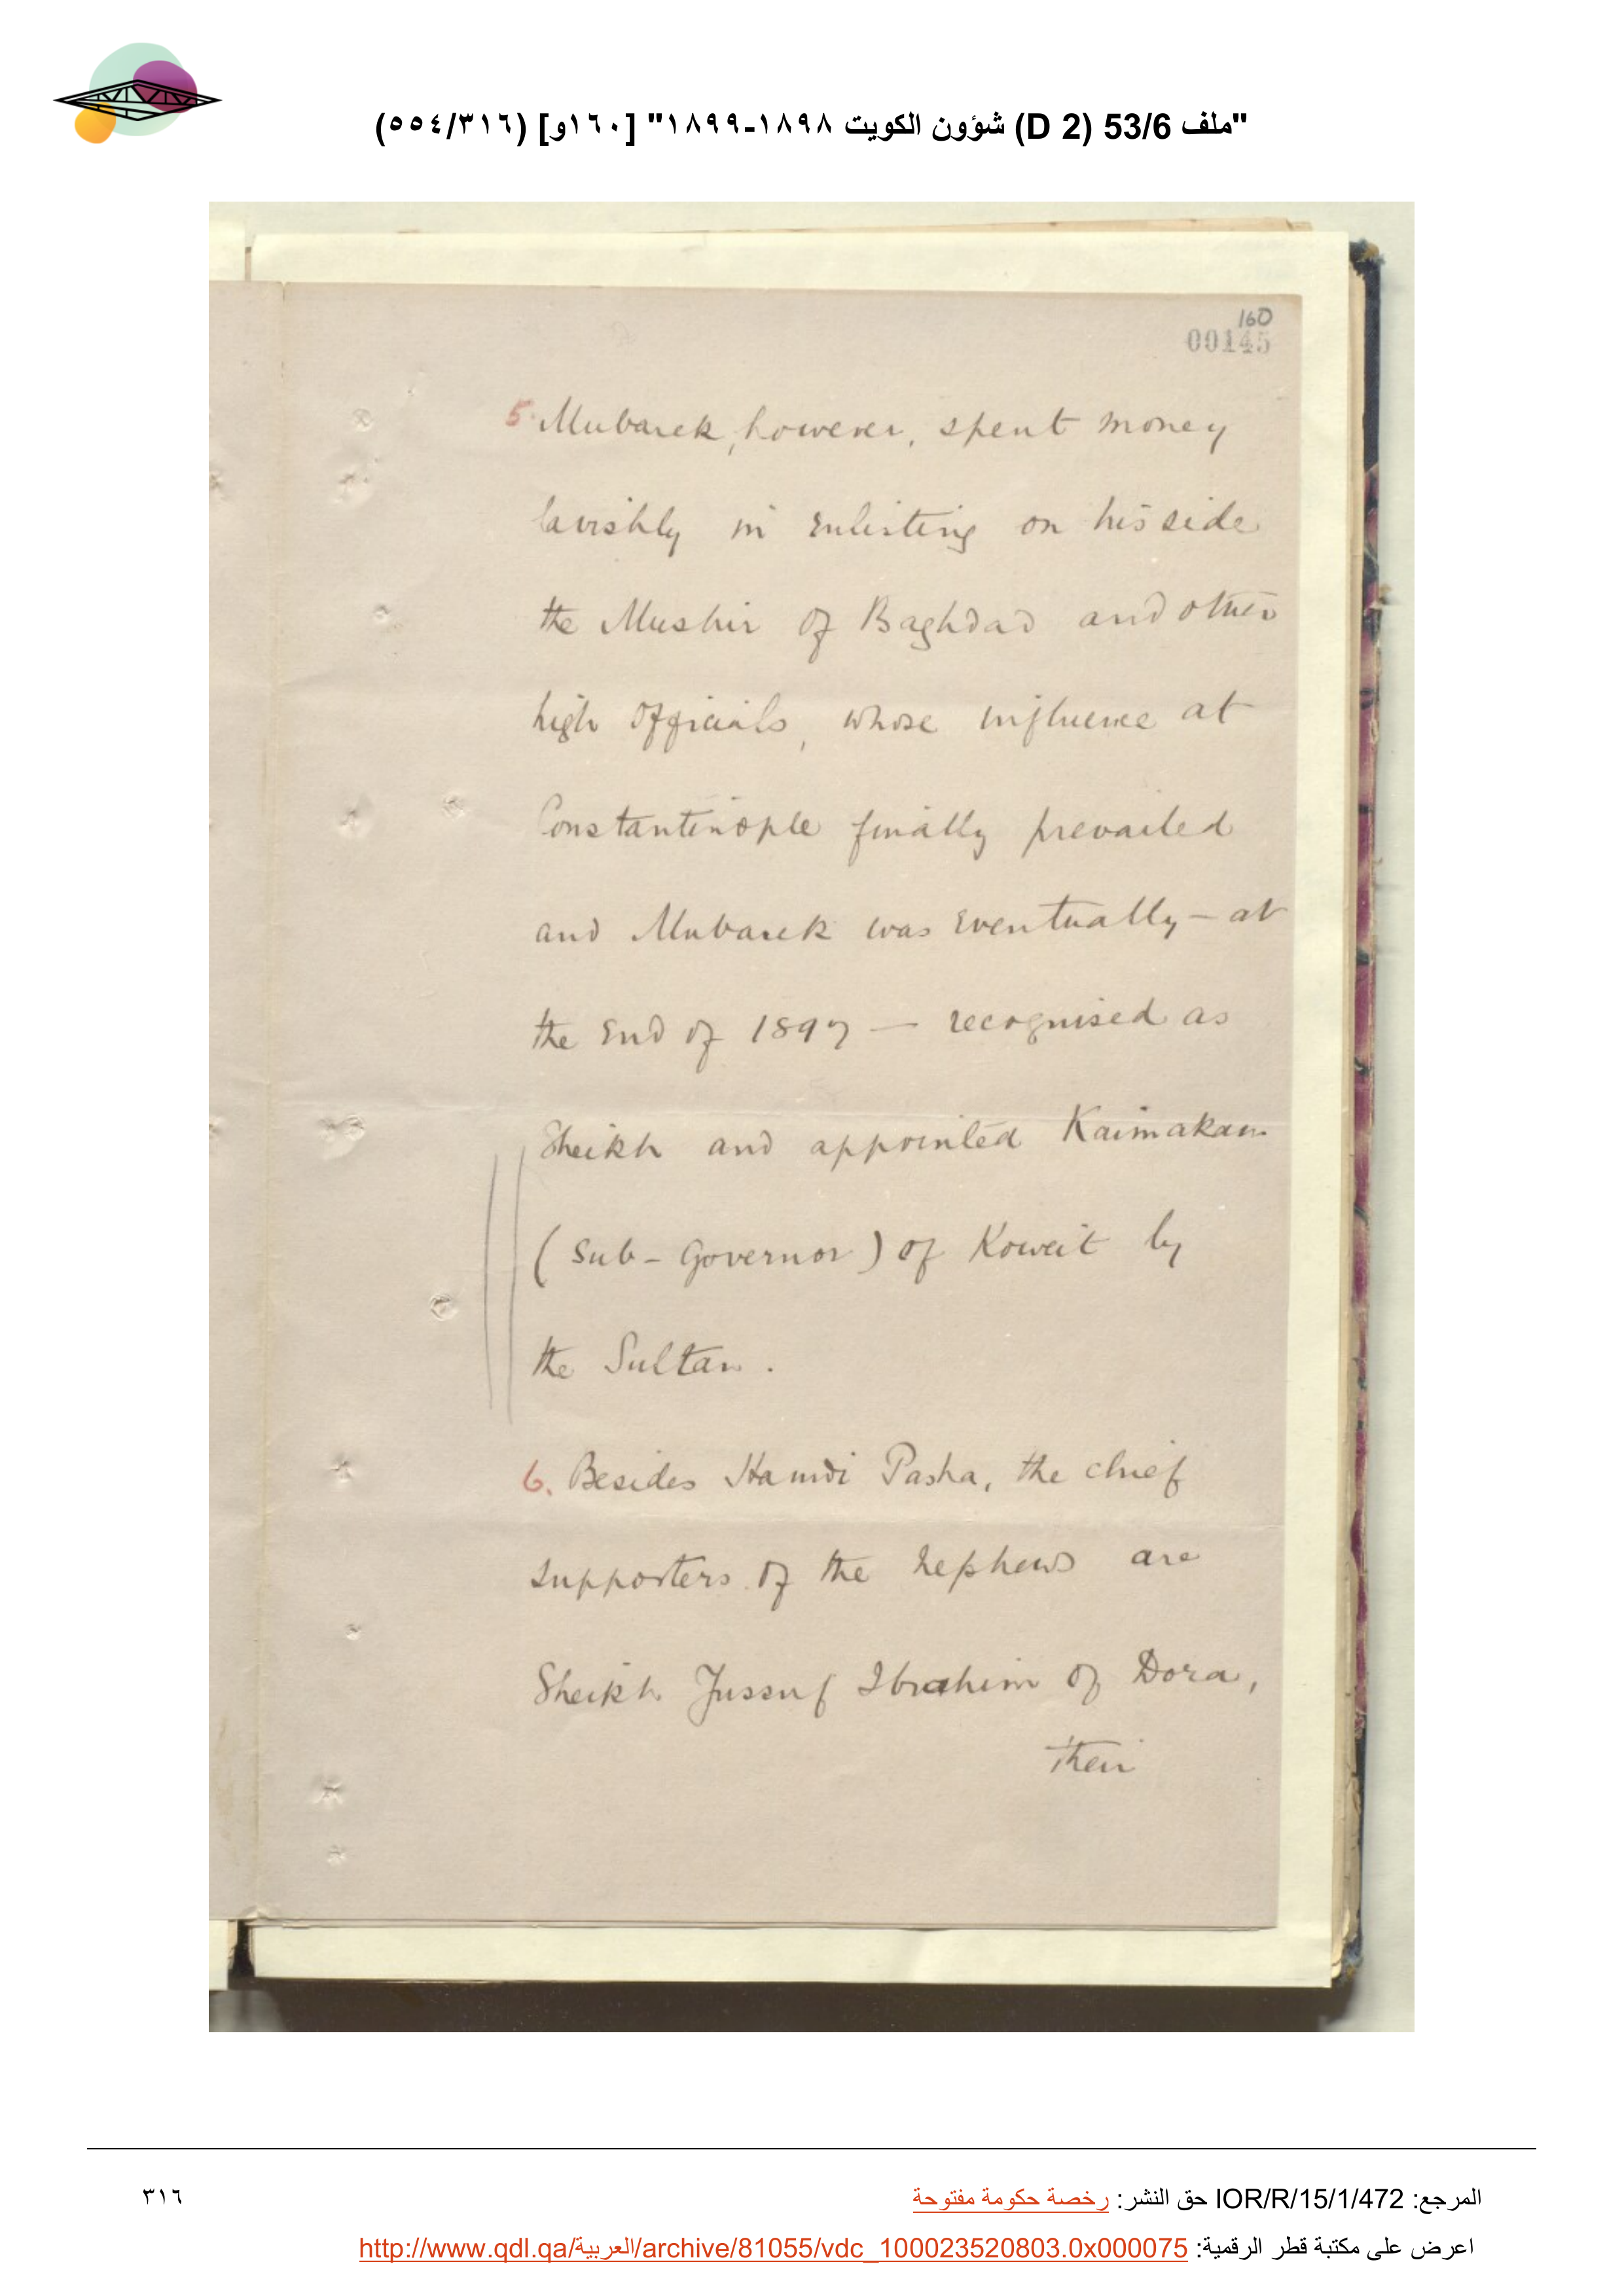 "ملف 53/6 (D 2) شؤون الكويت ١٨٩٨-١٨٩٩" [١٦٠و] (٥٥٤/٣١٦)
160
00145
5. Mubarek, however, spent money
lavishly in enlisting on his side
the Mushir of Baghdad and other
high officials, whose influence at
Constantinople finally prevailed
and Mubarek was eventually – at
the end of 1897 – recognised as
Sheikh and appointed Kaimakam
(Sub-Governor) of Koweit by
the Sultan.
6. Besides Hamdi Pasha, the chief
supporters of the nephews are
Sheikh Jussuf Ibrahim of Dora,
their
المرجع: IOR/R/15/1/472 حق النشر: رخصة حكومة مفتوحة
٣١٦
اعرض على مكتبة قطر الرقمية: http://www.qdl.qa/العربية/archive/81055/vdc_100023520803.0x000075